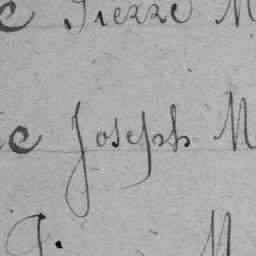 c Pierre M
c Joseph M